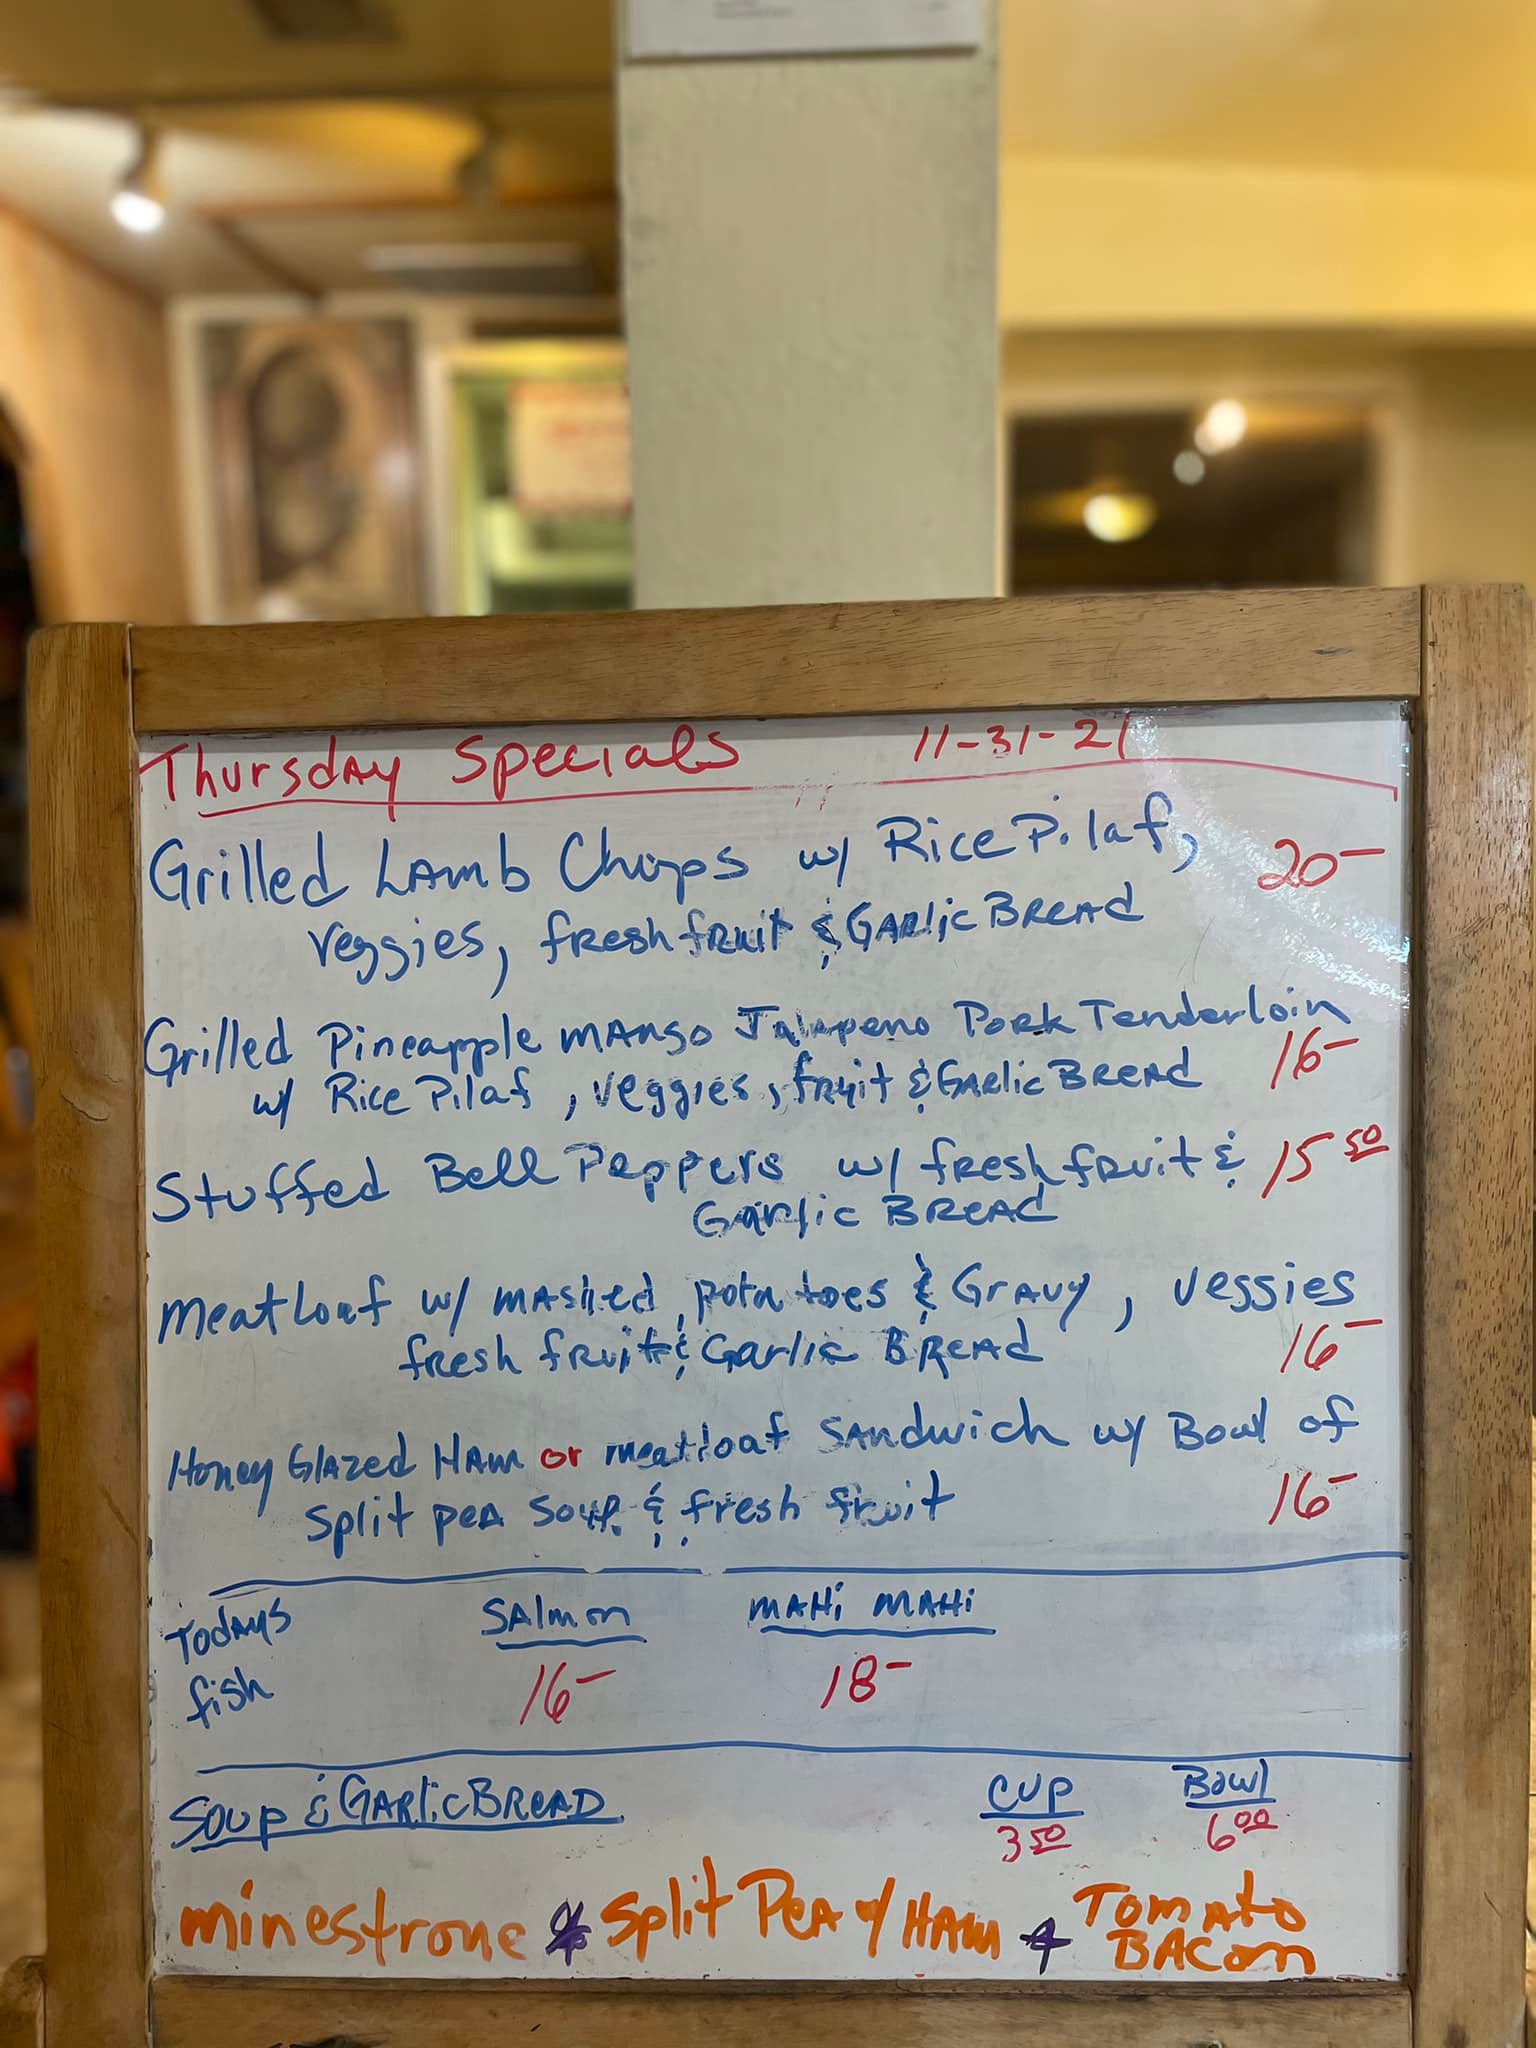 Thursday Specials 11-31-21
Grilled Lamb Chops w/ Rice Pilaf, 20-
veggies, fresh fruit & Garlic Bread
Grilled Pineapple mango Jalapeno Pork Tenderloin
w/ Rice Pilaf, veggies, fruit & Garlic Bread 16-
Stuffed Bell Peppers w/ fresh fruit & 15 50
Garlic Bread
Meatloaf w/ mashed potatoes & Gravy, veggies
fresh fruit & Garlic Bread 16-
Honey Glazed Ham or meatloaf Sandwich w/ Bowl of
Split pea Soup & fresh fruit 16-
Todays Salmon Mahi Mahi
fish 16- 18-
Soup & Garlic Bread Cup Bowl
3 50 6 00
minestrone * Split Pea w/ Ham * Tomato
Bacon